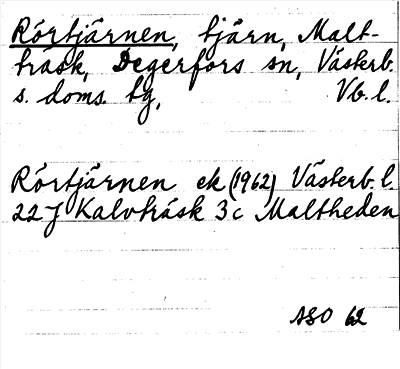 Rörtjärnen, tjärn, Malt-
träsk, Degerfors sn, Västerb.
s. doms. tg, Vb. l.
Rörtjärnen ek (1962) Västerb. l.
22 J Kalvträsk 3c Maltheden
ASO 62